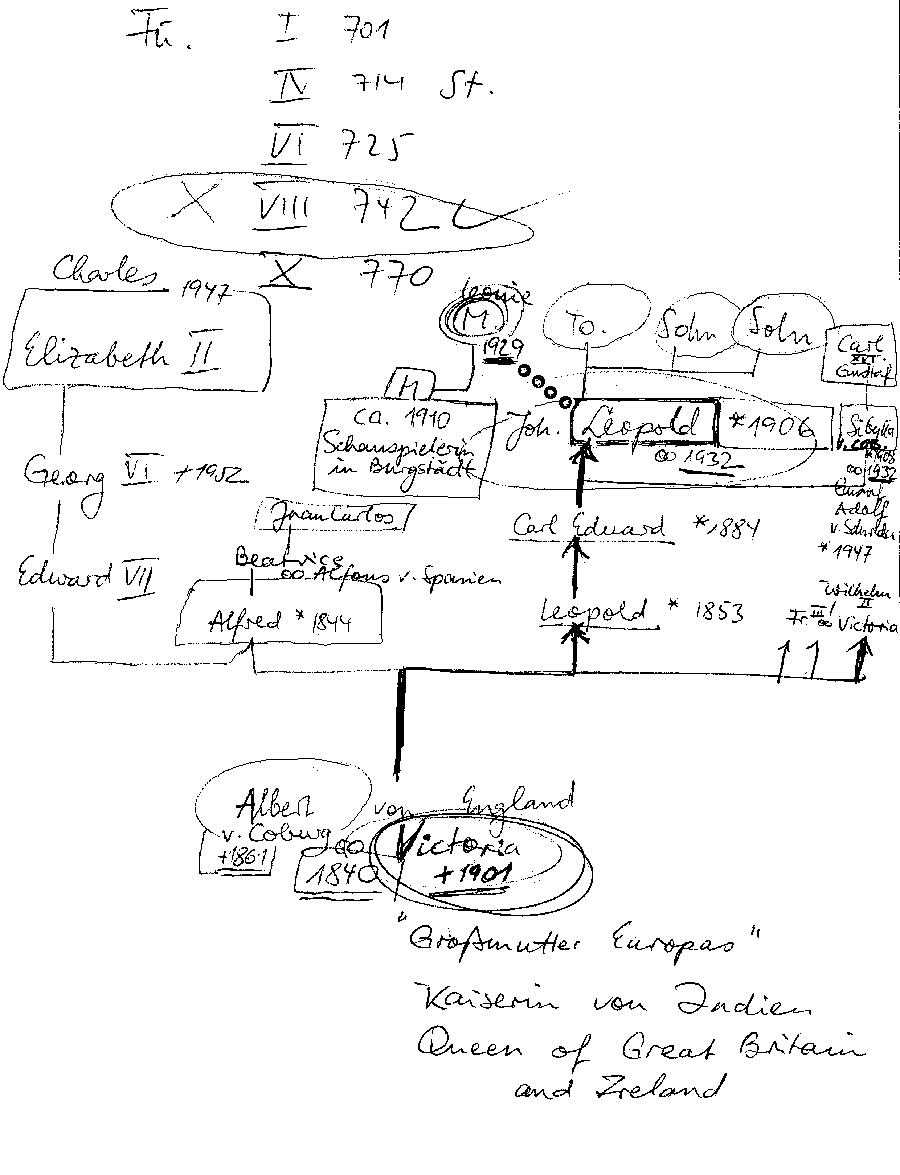 Fü. I 701
IV 714 St.
VI 725
X VIII 742
X 770
Charles 1947
Elizabeth II
Georg VI +1952
Edward VII
Leonie
M.
1929
To.
Sohn
Sohn
Carl
XVI.
Gustaf
M
ca. 1910
Schauspielerin
in Burgstädt
Joh. Leopold *1906
∞ 1932
Sibylla
v. Cob.
*1908
∞ 1932
Gustaf
Adolf
v. Schweden
* 1947
Juan Carlos
Beatrice
∞ Alfons v. Spanien
Alfred * 1844
Carl Eduard *1884
Leopold * 1853
Wilhelm
II
Fr. III ∞ Victoria
Albert
v. Coburg
+1861
∞
1840
von England
Victoria
+1901
"Großmutter Europas"
Kaiserin von Indien
Queen of Great Britain
and Ireland